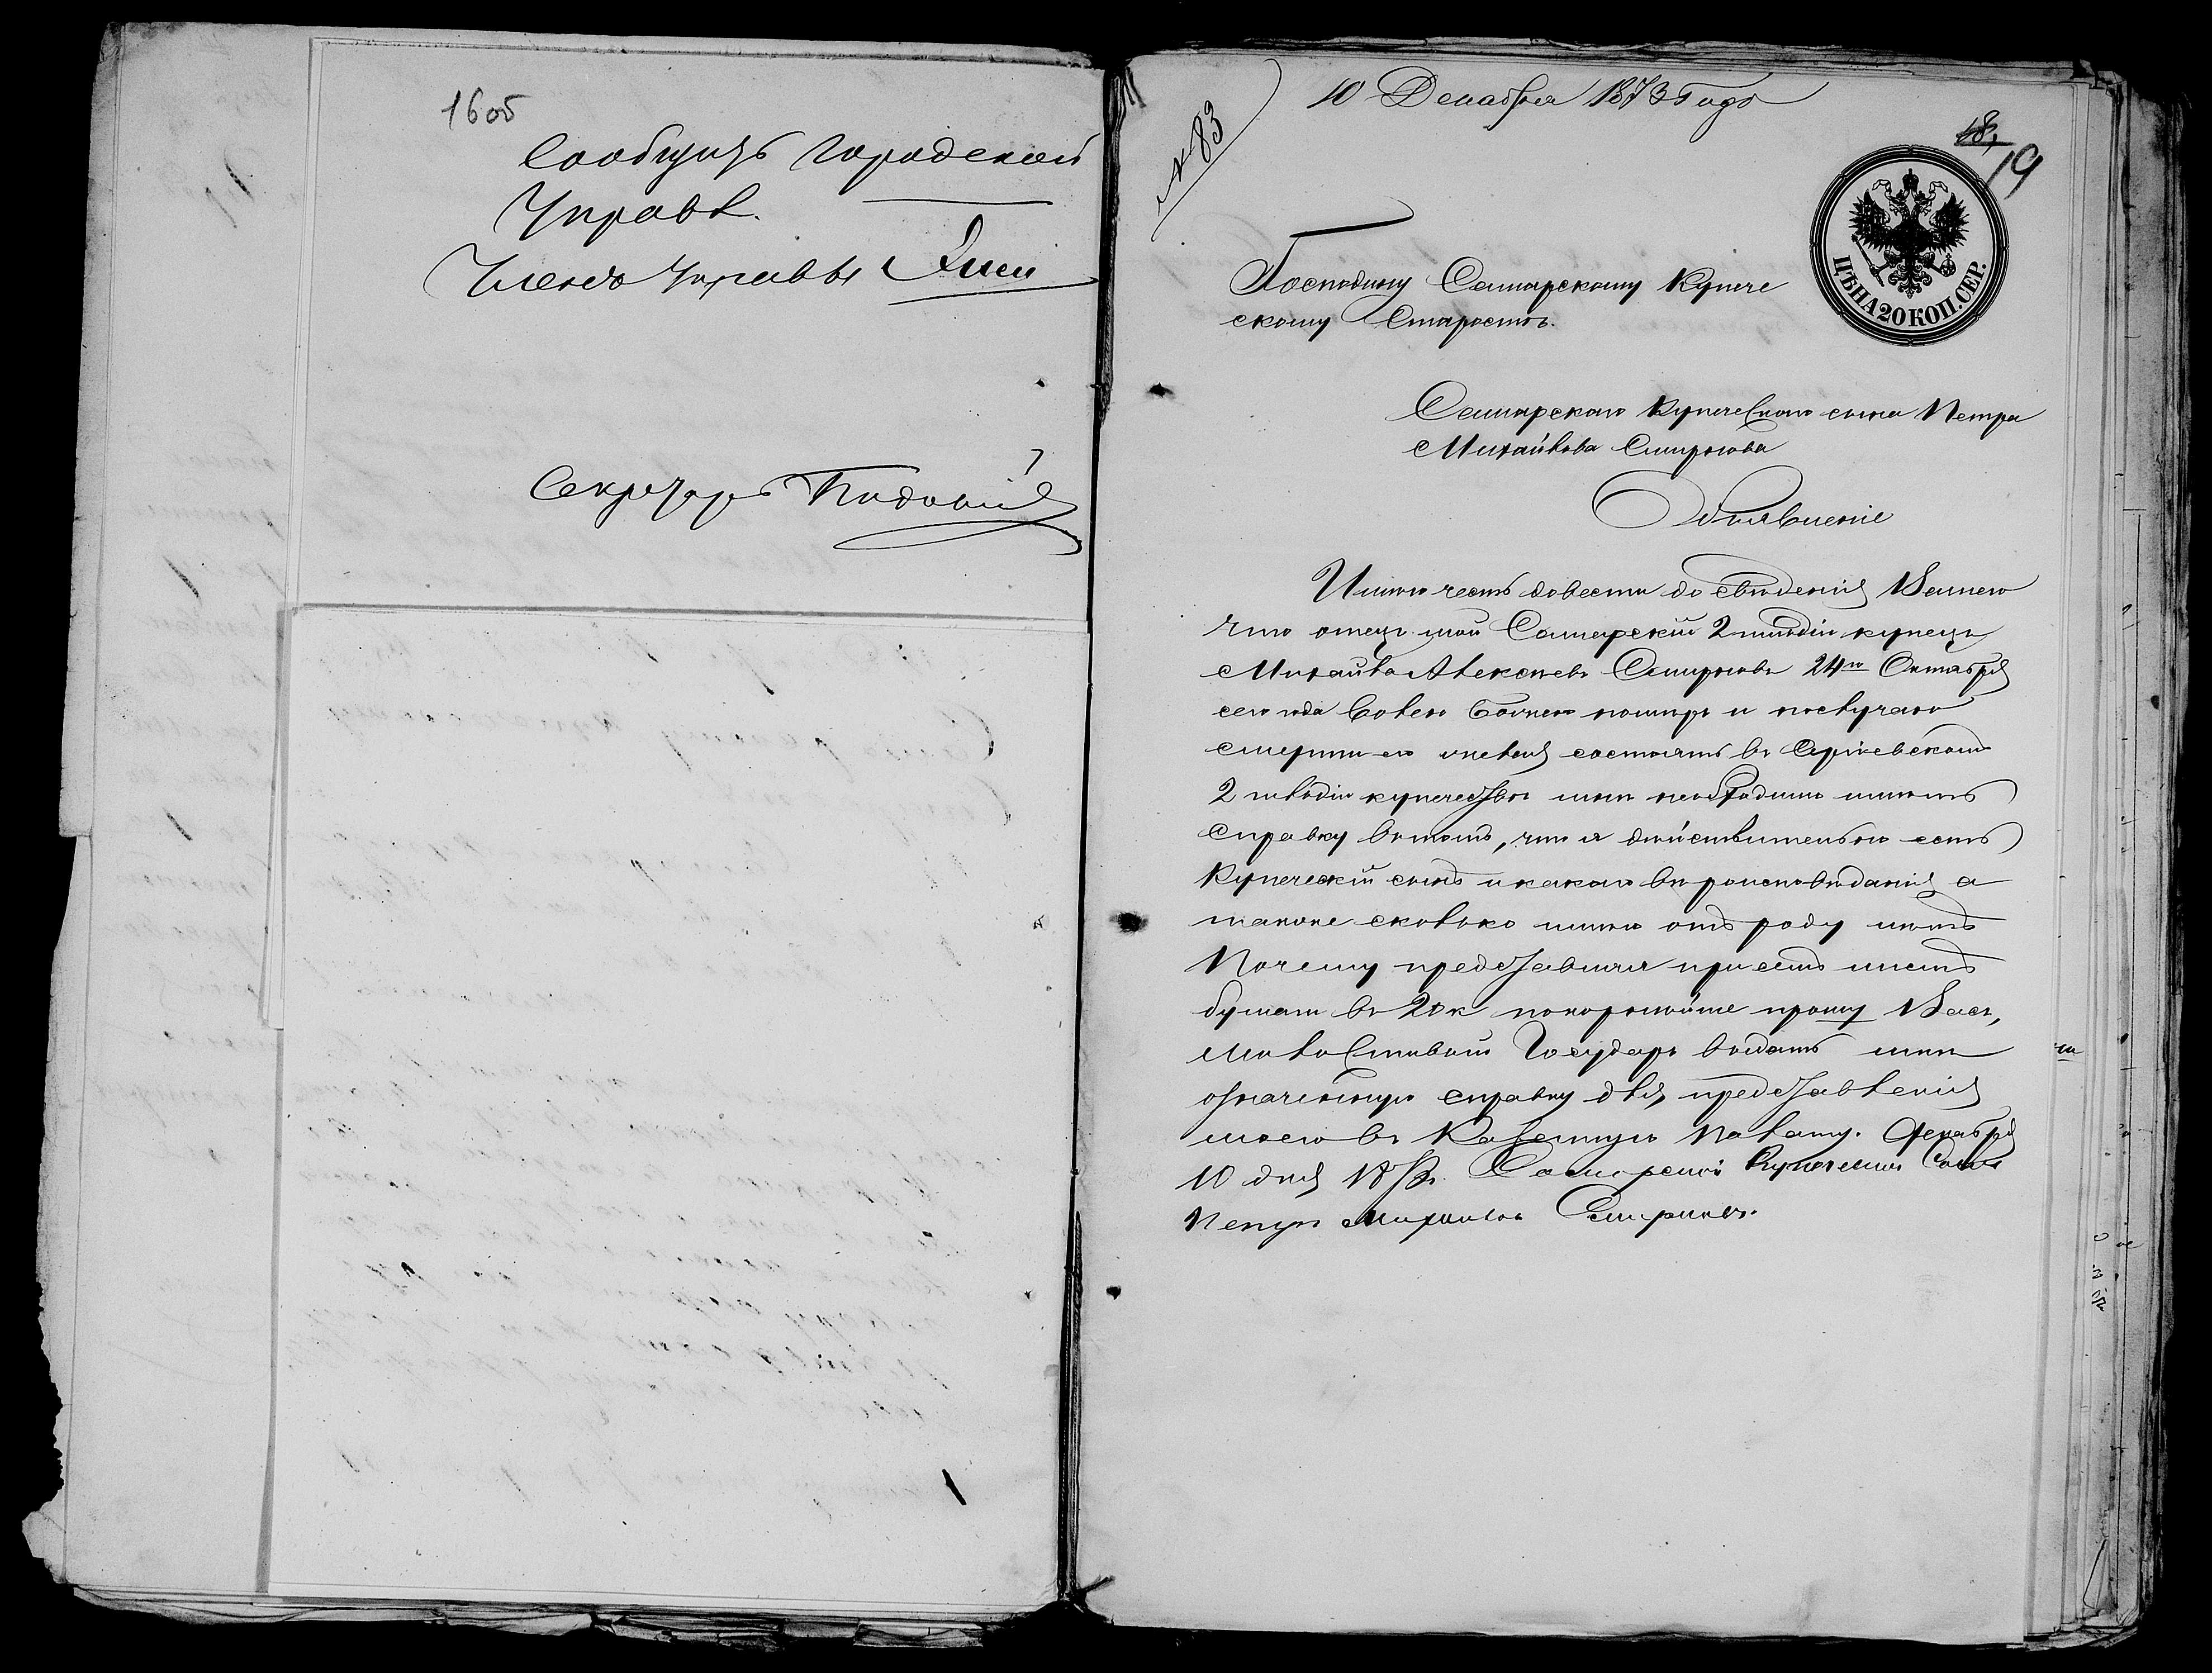 16об
Сообщить Городской
Управѣ.
Членъ Управы
Секретарь
№ 83
10 Декабря 1873 Года
18,
19
ЦѢНА 20 КОП. СЕР.
Господину Самарскому Купече
скому Старостѣ.
Самарскаго Купеческаго сына Петра
Михайлова Смирнова
Объявленіе
Имѣю честь довести до свѣденія Вашего
что отецъ мой Самарскій 2 гильдіи купецъ
Михайла Алексѣевъ Смирновъ 24го Октября
сего года волею Божiею помиръ и послучаю
смерти его я желая состоять въ Сергіевскомъ
2 гильдіи купечествѣ мнѣ необходимо имѣть
справку вътомъ, что я дѣйствительно есть
Купеческій сынъ и какого вѣроисповѣданія а
также сколько имѣю отъ роду лѣтъ
Почему представляя при семъ листъ
бумаги въ 20 к покорнѣйше прошу Васъ,
Милостивый Государь выдать мнѣ
означенную справку для представленія
мнѣ въ Казенную Палату. Декабря
10 дня 1873г. Самарской Купеческой Сынъ
Петръ Михаиловъ Смирновъ.